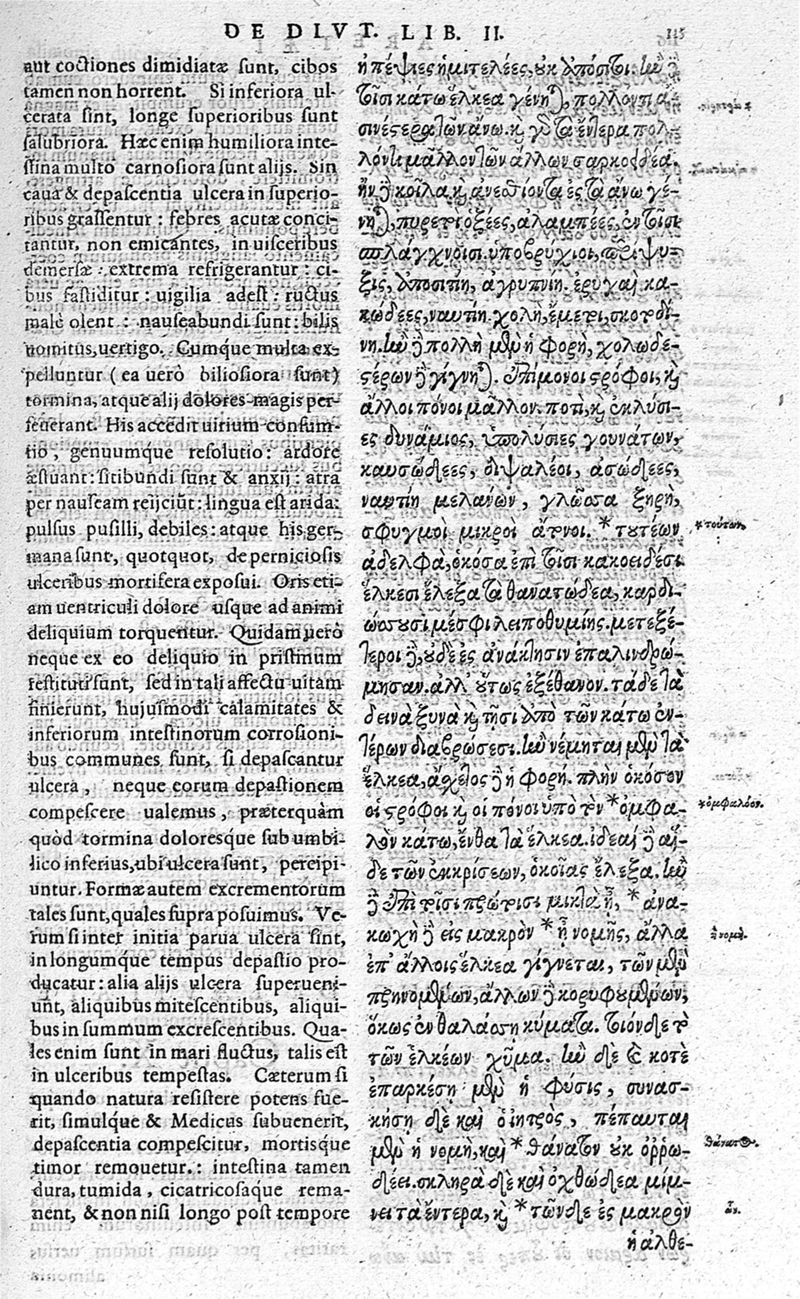 DE DIUT. LIB. II.
115
aut coctiones dimidiatæ sunt, cibos
tamen non horrent. Si inferiora ul-
cerata sint, longe superioribus sunt
salubriora. Hæc enim humiliora inte-
stina multò carnosiora sunt alijs. Sin
caua & depascentia ulcera in superio-
ribus grassentur: febres acutæ conci-
tantur, non emicantes, in uisceribus
demersæ: extrema refrigerantur: ci-
bus fastiditur: uigilia adest: ructus
malè olent: nauseabundi sunt: bilis
uomitus, uertigo. Cumque multa ex-
pelluntur (ea uerò biliosiora sunt)
tormina, atque alij dolores magis per-
seuerant. His accedit uirium consum-
tio, genuumque resolutio: ardore
æstuant: sitibundi sunt & anxij: atra
per nauseam reijciūt: lingua est arida:
pulsus pusilli, debiles: atque his ger-
mana sunt, quotquot, de perniciosis
ulceribus mortifera exposui. Oris eti-
am uentriculi dolore usque ad animi
deliquium torquentur. Quidam uerò
neque ex eo deliquio in pristinum
restituti sunt, sed in tali affectu uitam
finierunt, hujusmodi calamitates &
inferiorum intestinorum corrosioni-
bus communes sunt, si depascantur
ulcera, neque eorum depastionem
compescere ualemus, præterquàm
quòd tormina doloresque sub umbi-
lico inferius, ubi ulcera sunt, percipi-
untur. Formæ autem excrementorum
tales sunt, quales supra posuimus. Ve-
rum si inter initia parua ulcera sint,
in longumque tempus depastio pro-
ducatur: alia alijs ulcera superueni-
unt, aliquibus mitescentibus, aliqui-
bus in summum excrescentibus. Qua-
les enim sunt in mari fluctus, talis est
in ulceribus tempestas. Cæterum si
quando natura resistere potens fue-
rit, simulque & Medicus subuenerit,
depascentia compescitur, mortisque
timor remouetur.: intestina tamen
dura, tumida, cicatricosaque rema-
nent, & non nisi longo post tempore
ἢ πέψιες ἡμιτελέες. οὐκ ἀπόσιτοι. ἢν
τοῖσι κάτω ἕλκεα γένηται, πολλὸν πα
σινέστερα τῶν ἄνω. καὶ γὰρ τὰ ἔντερα πολ-
λόν τι μᾶλλον τῶν ἄλλων σαρκοειδέα.
ἢν δὲ κοῖλα, καὶ ἀνεστίοντα ἐς τὰ ἄνω γέ-
νηται, πυρετοὶ ὀξέες, ἀλαμπέες, ἐν τοῖσι
σπλάγχνοισι ὑποβρύχιοι, περιψυ-
ξις, ἀποσιτίη, ἀγρυπνίη. ἐρυγαὶ κα-
κώδεες, ναυτίη. χολὴ, ἔμετοι, σκοτοδί-
νη. ἢν δὲ πολλὴ μὲν ἡ φορὴ, χολωδε-
στέρων δὲ γίγνηται. ἐπίμονοι στρόφοι, καὶ
ἄλλοι πόνοι μᾶλλον. ποτὶ, καὶ ἐκλύσι-
ες δυνάμιος, ὑπολύσιες γουνάτων,
καυσώδεες, διψαλέοι, ἀσώδεες,
ναυτίη μελανων, γλῶσσα ξηρὴ,
σφυγμοὶ μικροὶ ἄτονοι. *τουτέων
ἀδελφὰ, ὁκόσα ἐπὶ τοῖσι κακοειδέσι
ἕλκεσι ἔλεξα τὰ θανατώδεα, καρδι-
ώσσουσι μέσφι λειποθυμίης. μετεξέ-
τεροι δὲ, οὐδὲ ἐς ἀνάκλησιν ἐπαλινδρώ-
μησαν. ἀλλ' οὕτως ἐξέθανον. τάδε τὰ
δεινὰ ξυνὰ καὶ τῇσι ἀπὸ τῶν κάτω ἐν-
τέρων διαβρώσεσι. ἢν νέμηται μὲν τὰ
ἕλκεα, ἄσχετος δὲ ἡ φορή. πλὴν ὁκόσον
οἱ στρόφοι καὶ οἱ πόνοι ὑπὸ τὸν *ὀμφα-
λὸν κάτω, ἔνθα τὰ ἕλκεα. ἰδέαι δὲ αἵ-
δε τῶν ἐκκρίσεων, ὁκοίας ἔλεξα. ἢν
δὲ ἐπὶ τοῖσι πρώτοισι μικτὰ ᾖ, *ἀνα-
κωχὴ δὲ εἰς μακρὸν *ᾖ νομῆς, ἄλλα
ἐπ' ἄλλοις ἕλκεα γίγνεται, τῶν μὲν
πρηϋνομένων, ἄλλων δὲ κορυφουμένων,
ὅκως ἐν θαλάσσῃ κύματα. τοιόνδε τὸ
τῶν ἑλκέων χῦμα. ἢν δέ κοτε
ἐπαρκέσῃ μὲν ἡ φύσις, συνασ-
κήσῃ δὲ καὶ ὁ ἰητρὸς, πέπαυται
μὲν ἡ νομὴ, καὶ *θάνατον οὐκ ὀῤῥω-
δέει. σκληρὰ δὲ καὶ ὀχθώδεα μίμ-
νει τὰ ἔντερα, καὶ *τῶνδε ἐς μακρὸν
ἡ ἀλθε-
*τούτων
*ὀμφαλόον.
ἡ νομὴ.
θάνατος.